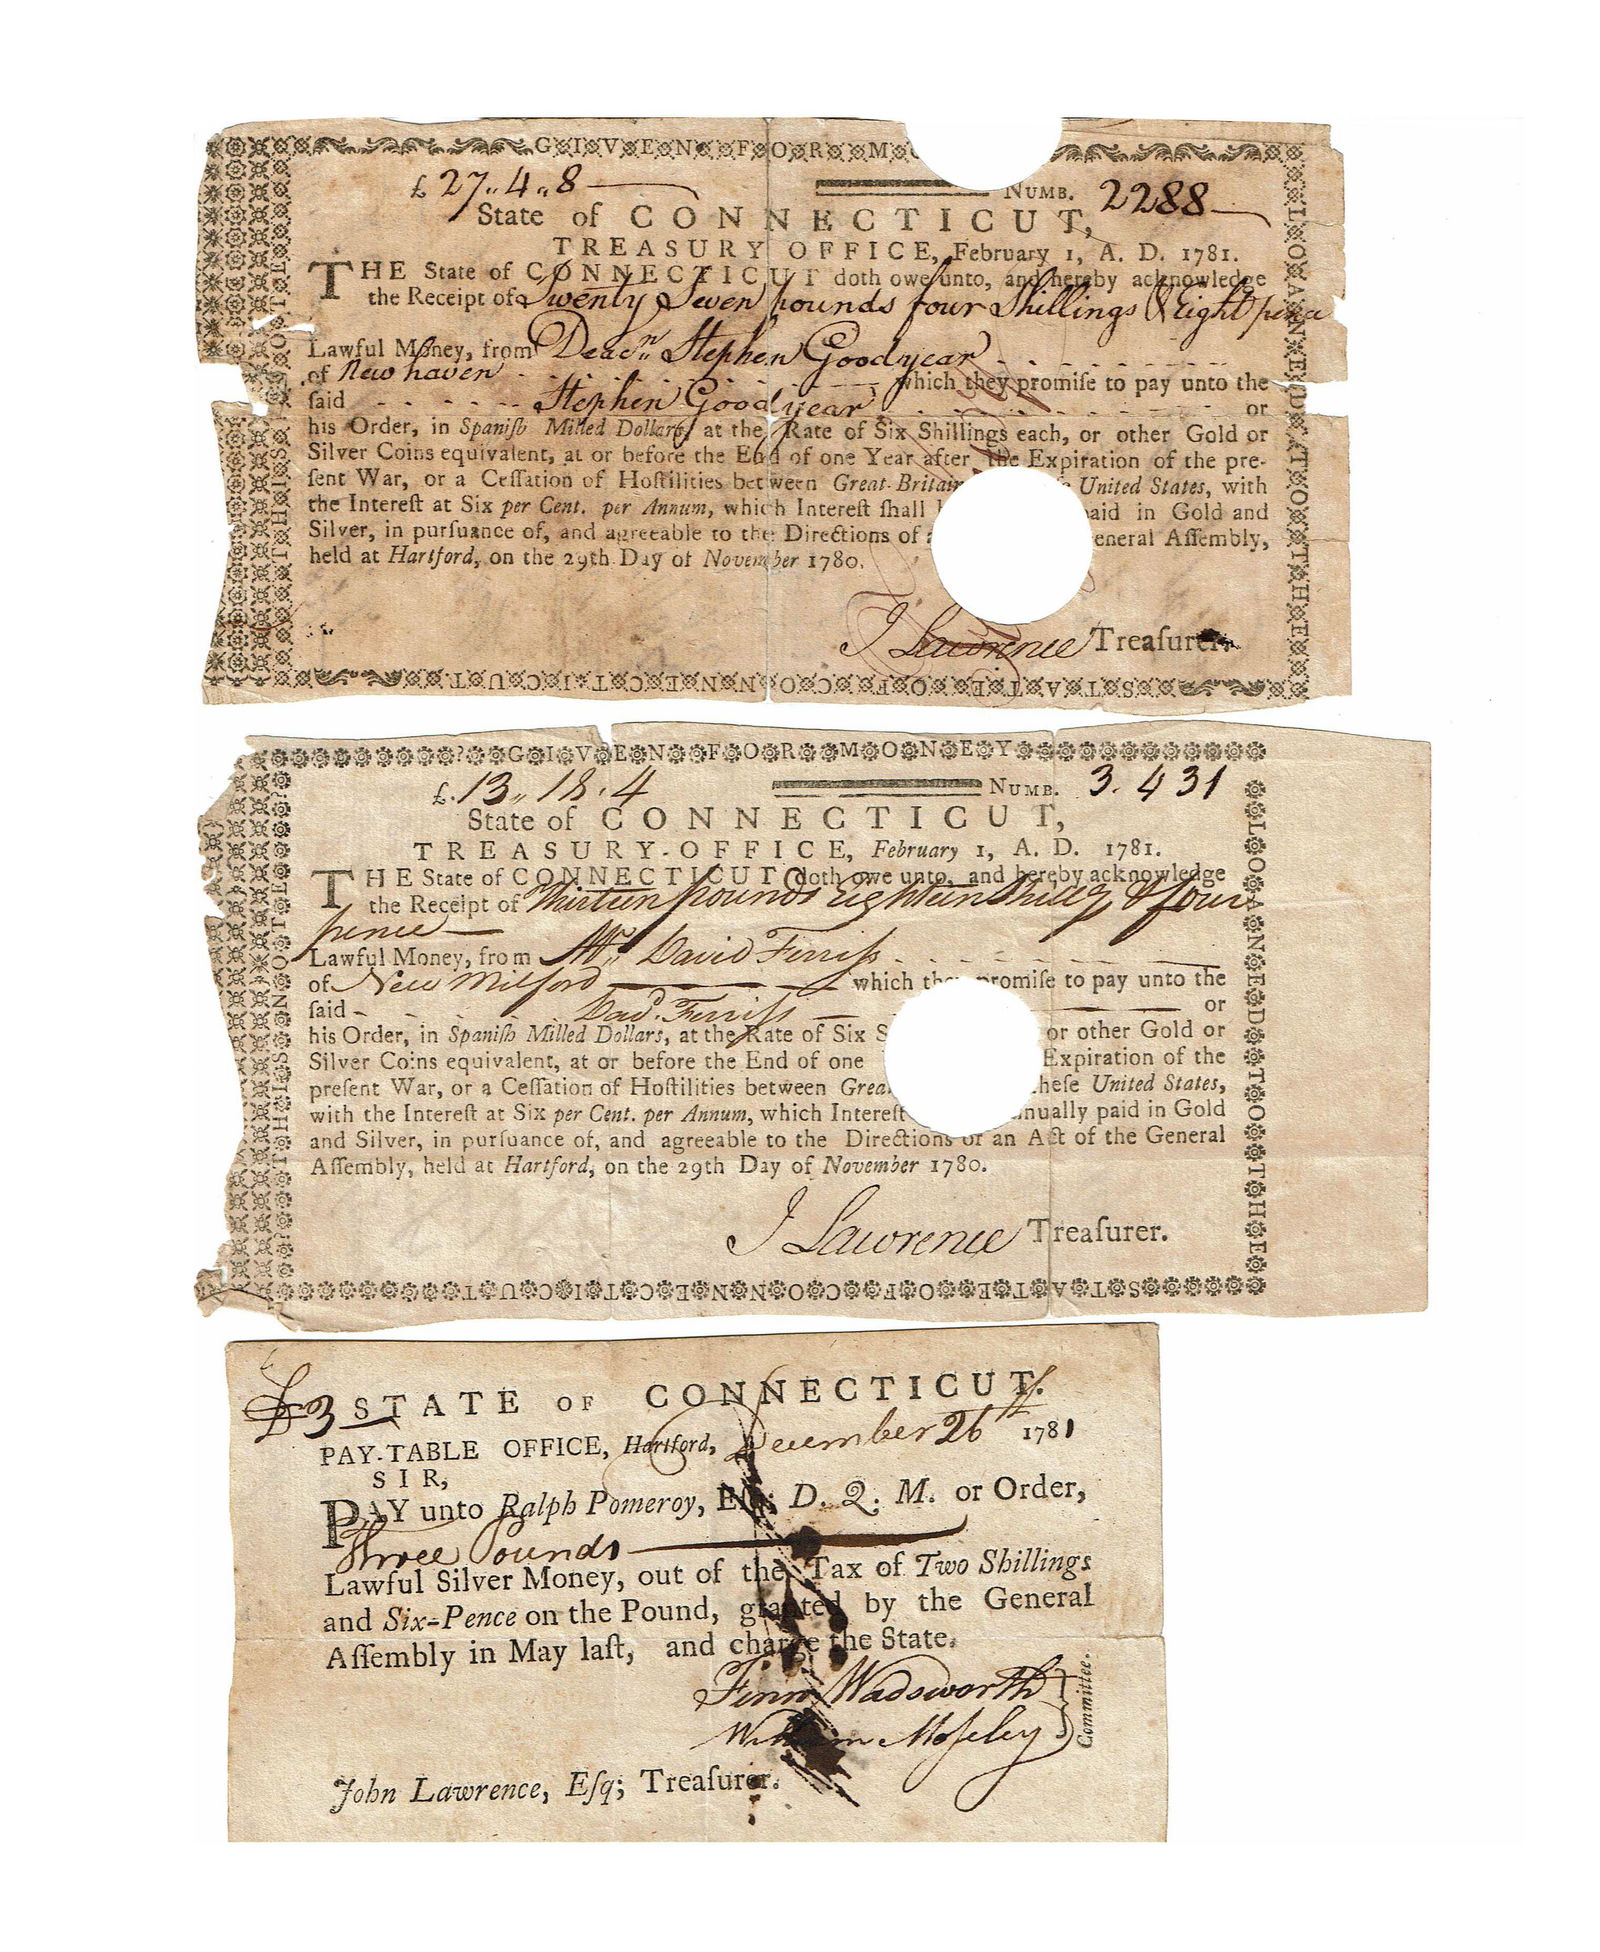 GIVEN FOR M
£ 27 „ 4 „ 8
NUMB. 2288
State of CONNECTICUT,
TREASURY OFFICE, February 1, A. D. 1781.
THE State of CONNECTICUT doth owe unto, and hereby acknowledge
the Receipt of Twenty Seven pounds four Shillings & Eight pence
Lawful Money, from Deacn Stephen Goodyear
of New haven which they promiſe to pay unto the
ſaid Stephen Goodyear or
his Order, in Spaniſh Milled Dollars, at the Rate of Six Shillings each, or other Gold or
Silver Coins equivalent, at or before the End of one Year after the Expiration of the pre-
ſent War, or a Ceſſation of Hoſtilities between Great-Britain United States, with
the Intereſt at Six per Cent. per Annum, which Intereſt ſhall paid in Gold and
Silver, in purſuance of, and agreeable to the Directions of eneral Aſſembly,
held at Hartford, on the 29th Day of November 1780.
J Lawrence Treaſurer.
THIS NOTE
LOANED TO THE
STATE OF CONNECTICUT
GIVEN FOR MONEY
£. 13 „ 18 . 4
NUMB. 3.431
State of CONNECTICUT,
TREASURY-OFFICE, February 1, A. D. 1781.
THE State of CONNECTICUT doth owe unto, and hereby acknowledge
the Receipt of Thirteen pounds Eighteen Shillg & four
pence
Lawful Money, from Mr. David Ferriſs
of New Milford which they promiſe to pay unto the
ſaid Dad. Ferriſs or
his Order, in Spaniſh Milled Dollars, at the Rate of Six S or other Gold or
Silver Coins equivalent, at or before the End of one Expiration of the
preſent War, or a Ceſſation of Hoſtilities between Grea heſe United States,
with the Intereſt at Six per Cent. per Annum, which Intereſt nually paid in Gold
and Silver, in purſuance of, and agreeable to the Directions of an Act of the General
Aſſembly, held at Hartford, on the 29th Day of November 1780.
J Lawrence Treaſurer.
THIS NOTE
LOANED TO THE
STATE OF CONNECTICUT
£3 STATE OF CONNECTICUT.
PAY-TABLE OFFICE, Hartford, December 26th 1781
SIR,
PAY unto Ralph Pomeroy, Eſq; D. Q. M. or Order,
Three Pounds
Lawful Silver Money, out of the Tax of Two Shillings
and Six-Pence on the Pound, granted by the General
Aſſembly in May laſt, and charge the State.
Fenn Wadsworth
William Moſeley
Committee.
John Lawrence, Eſq; Treaſurer.